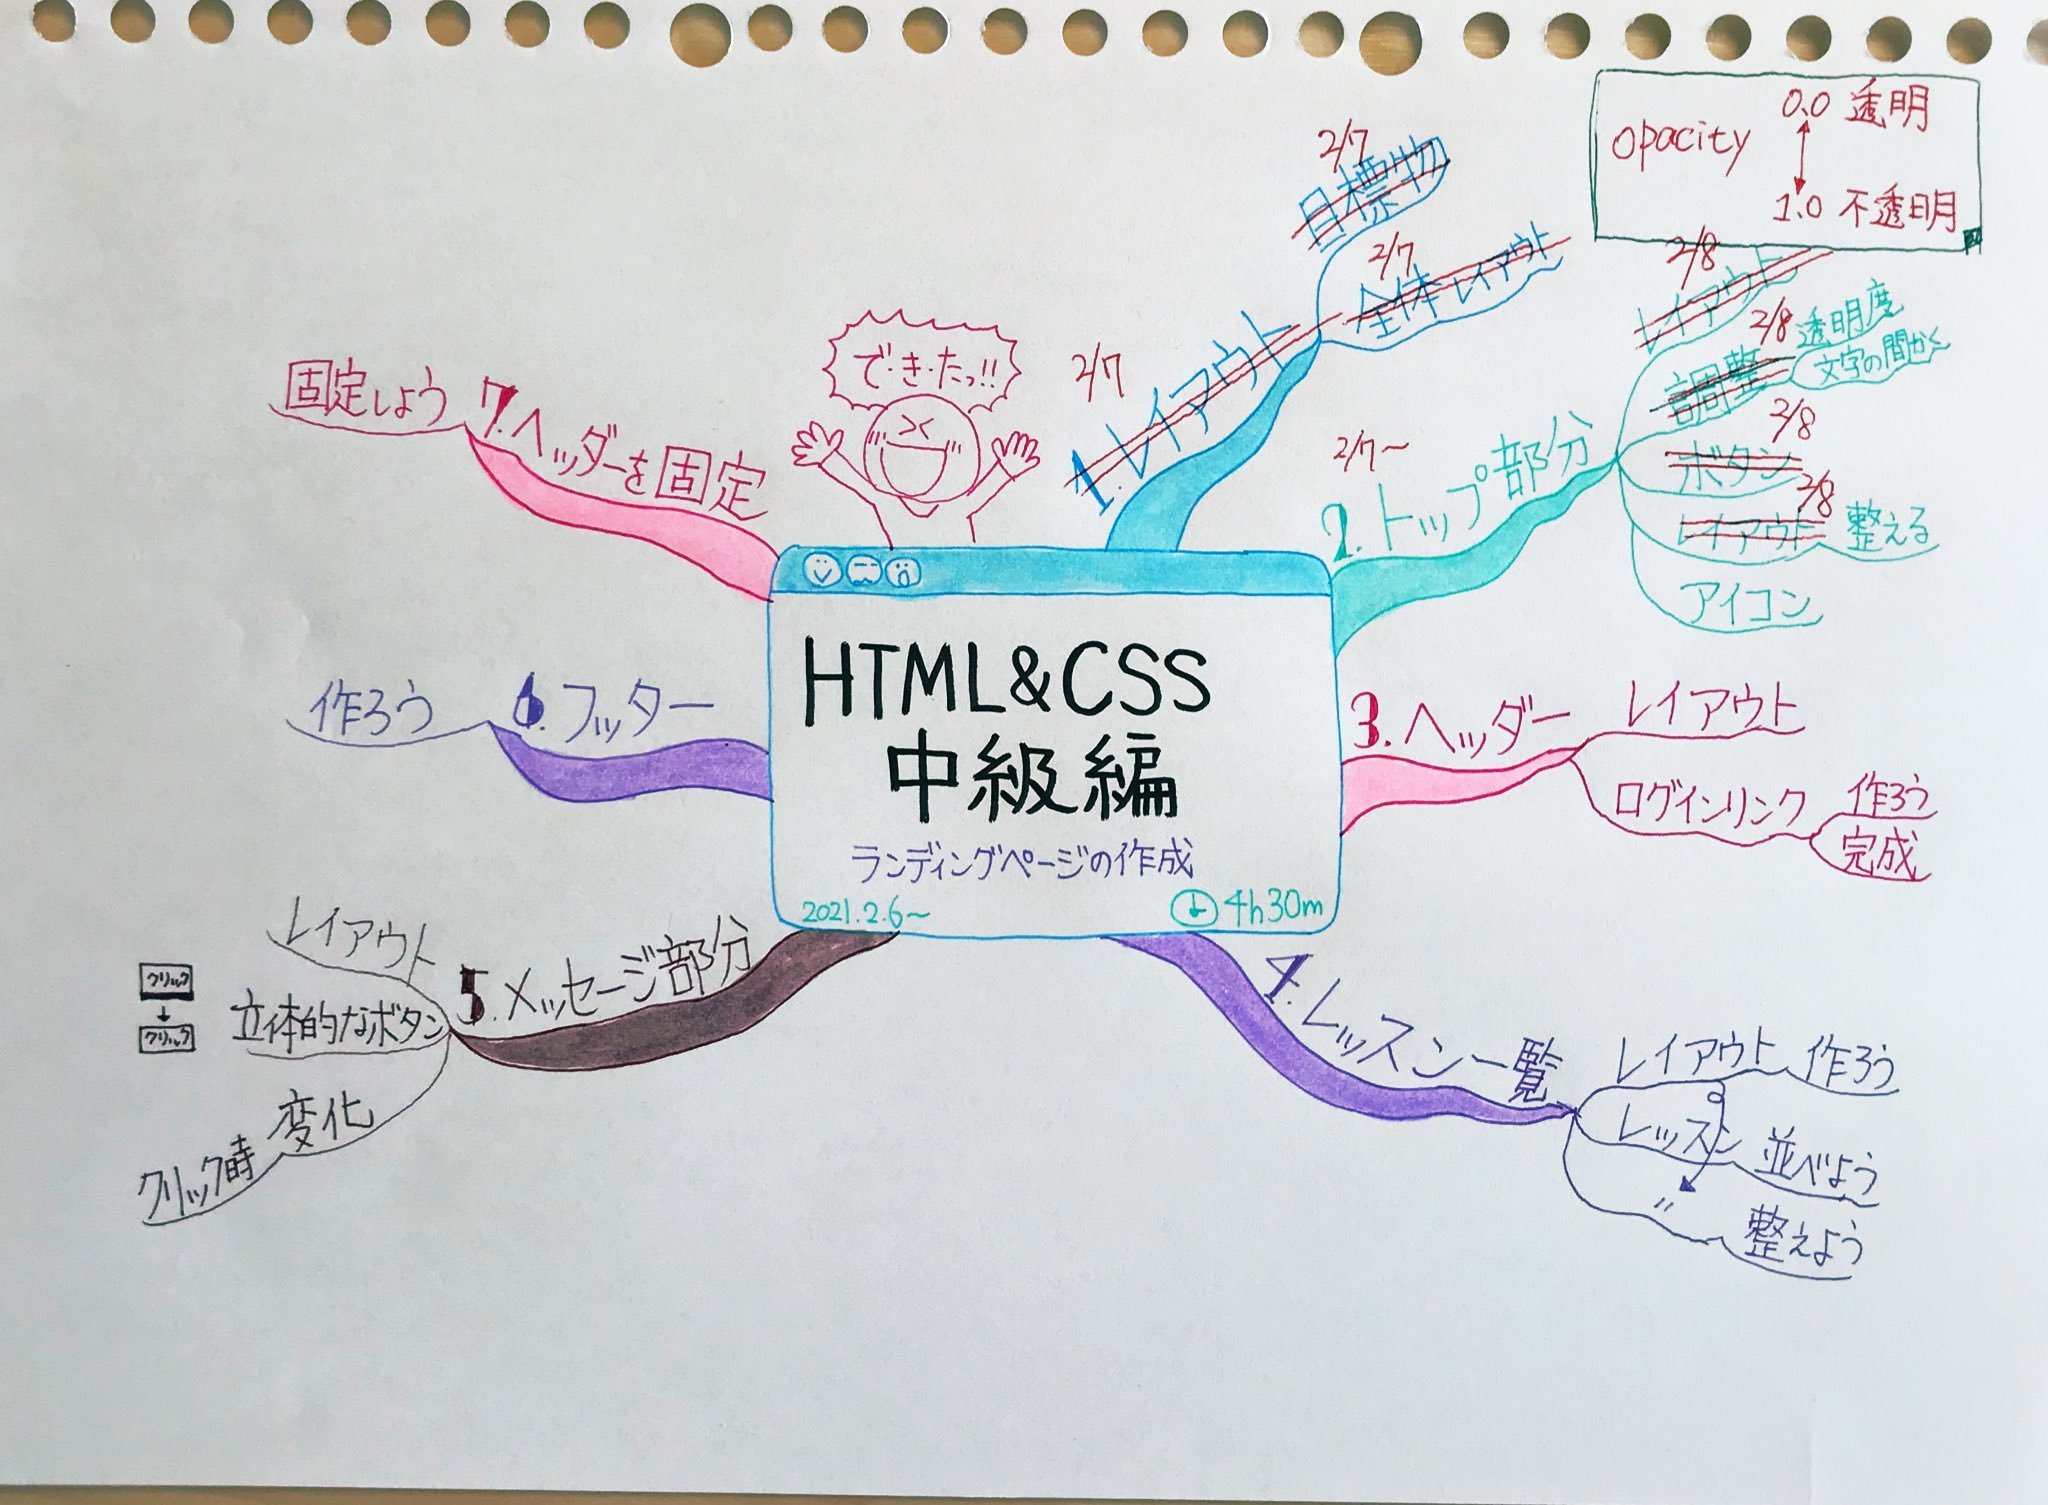 HTML&CSS
中級編
ランディングページの作成
2021.2.6~
4h30m
で・き・たっ!!
2/7
1.レイアウト
2/7
目標物
2/7
全体レイアウト
2/7~
2.トップ部分
2/8
レイアウト
2/8
調整
透明度
文字の間かく
2/8
ボタン
2/8
レイアウト
整える
アイコン
opacity
0.0 透明
1.0 不透明
3.ヘッダー
レイアウト
ログインリンク
作ろう
完成
4.レッスン一覧
レイアウト 作ろう
レッスン 並べよう
〃 整えよう
5.メッセージ部分
レイアウト
立体的なボタン
クリック
クリック
変化
クリック時
6.フッター
作ろう
7.ヘッダーを固定
固定しよう